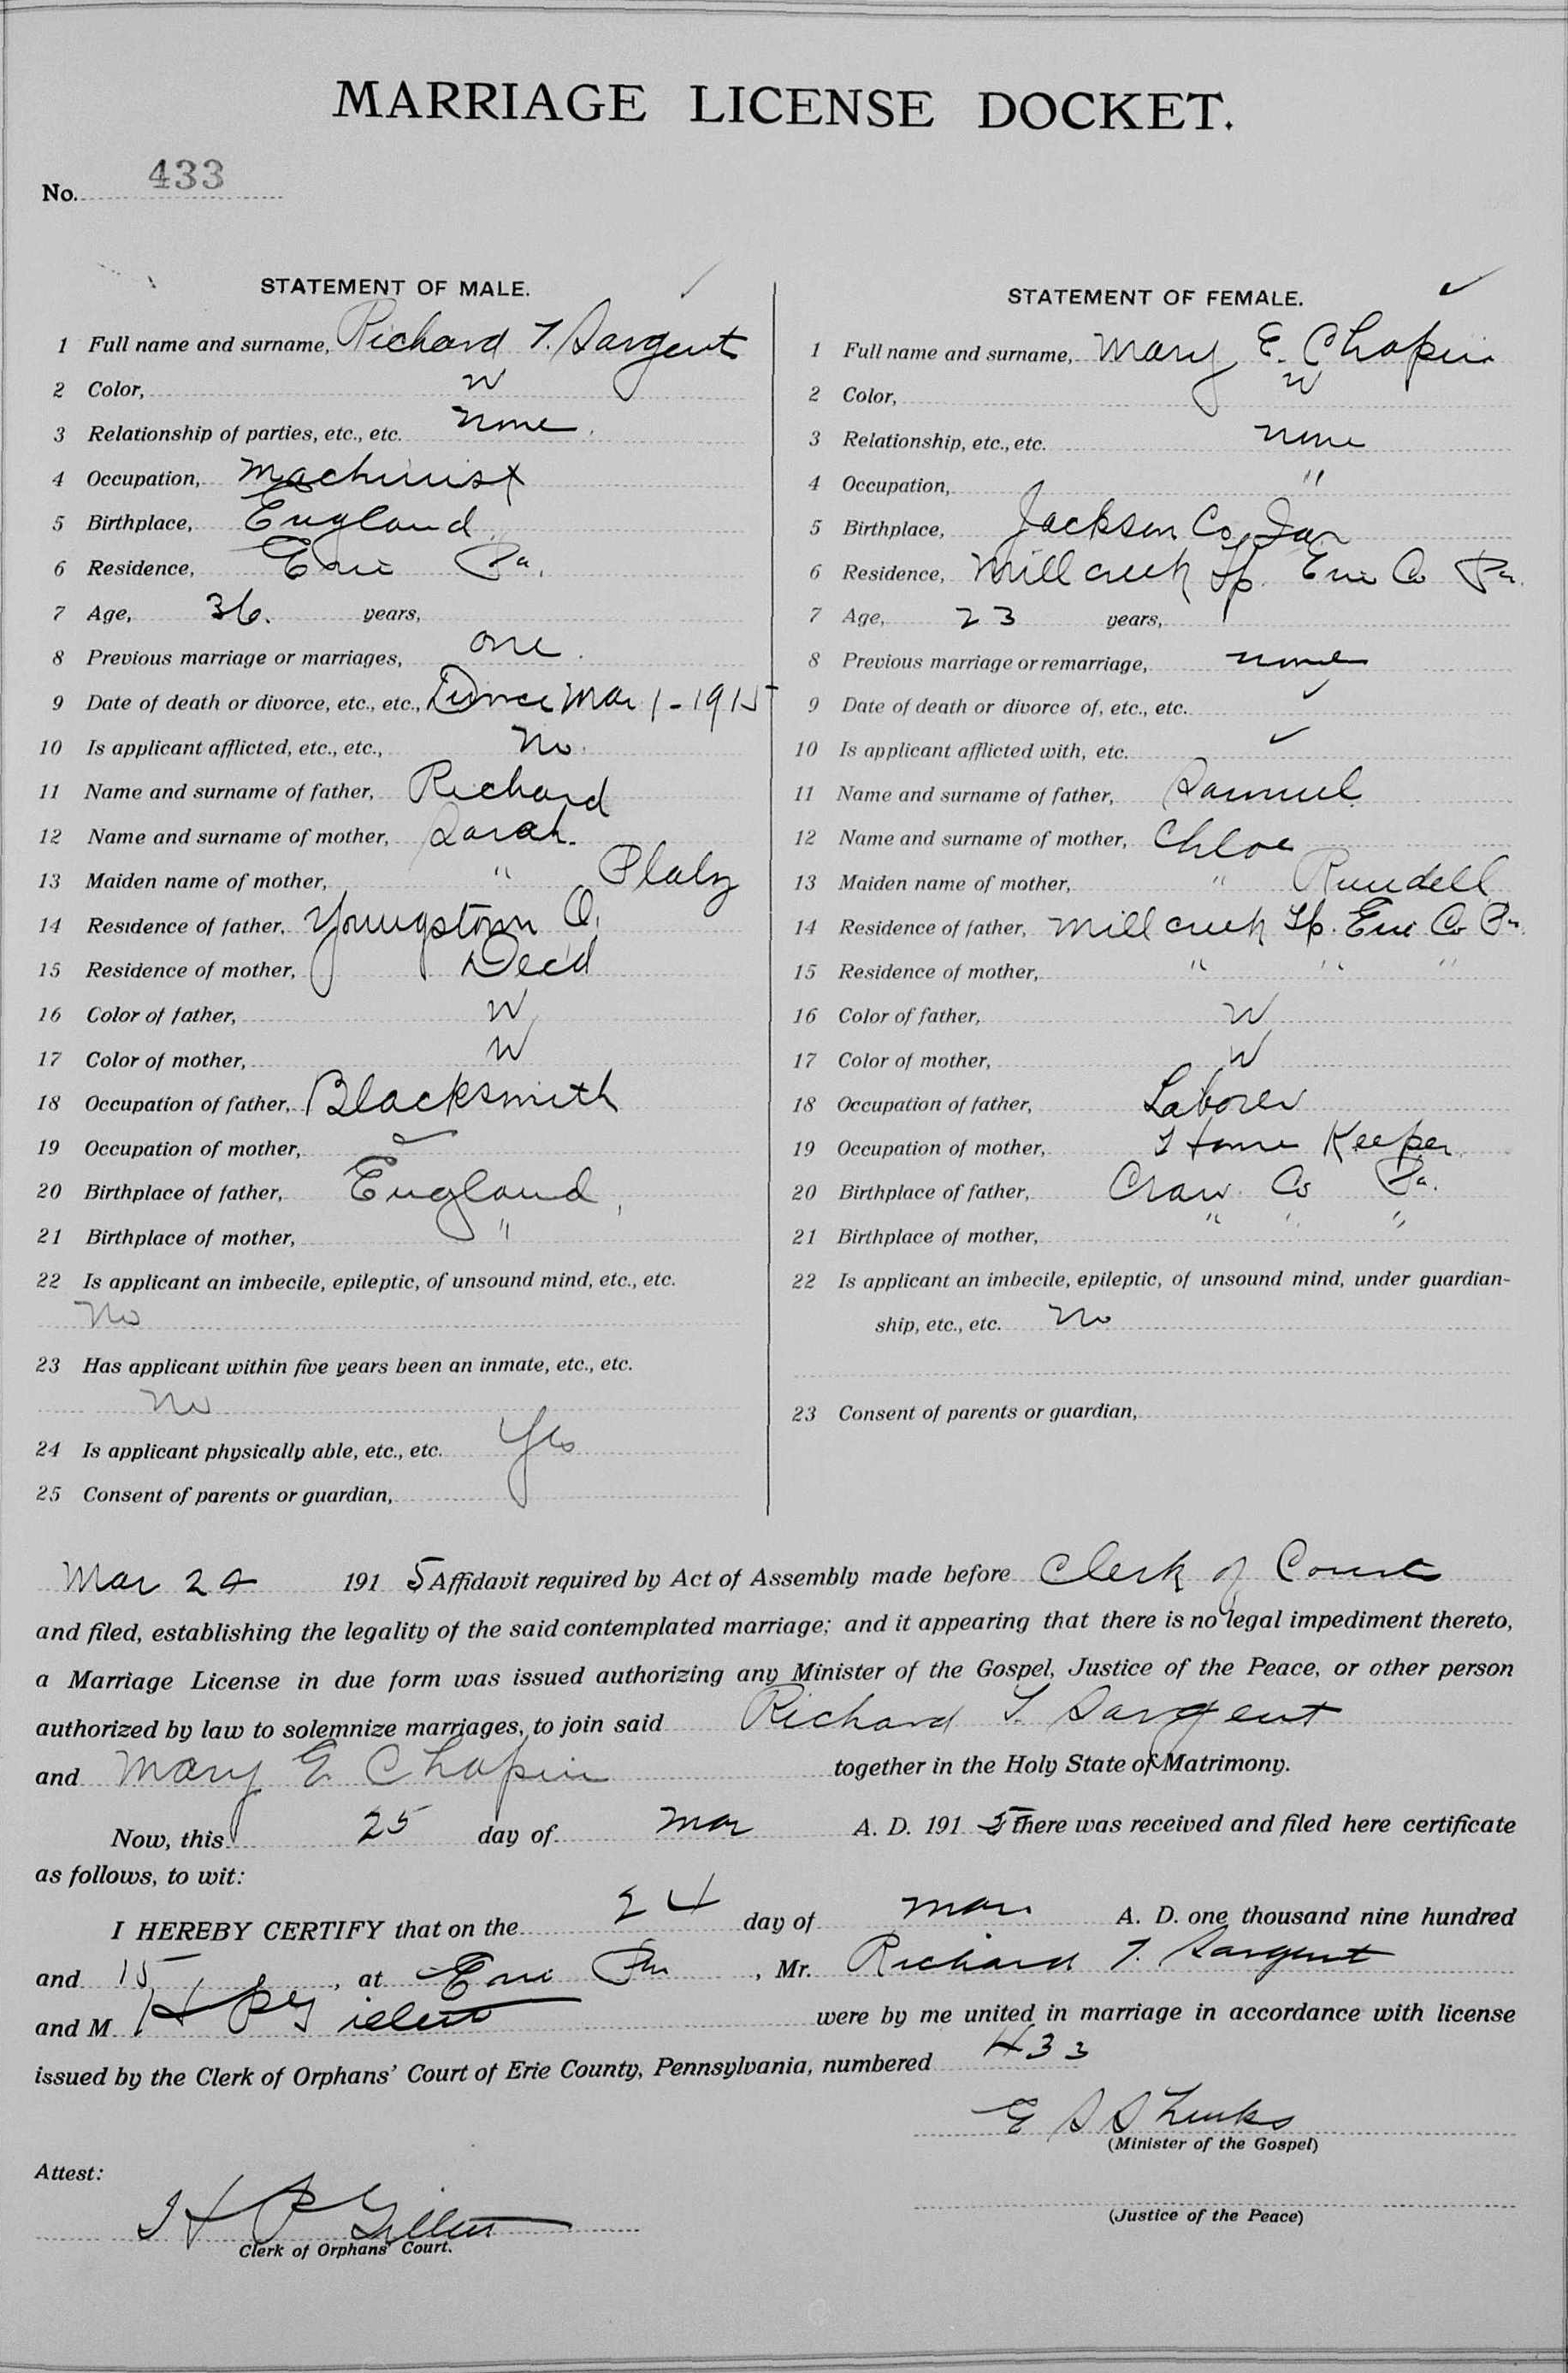 MARRIAGE LICENSE DOCKET.
No. 433
STATEMENT OF MALE.
1 Full name and surname, Richard T. Sargent
2 Color, W
3 Relationship of parties, etc., etc. none
4 Occupation, Machinist
5 Birthplace, England
6 Residence, Erie Pa.
7 Age, 36. years,
8 Previous marriage or marriages, one
9 Date of death or divorce, etc., etc., Mar 1 - 1915
10 Is applicant afflicted, etc., etc., No.
11 Name and surname of father, Richard
12 Name and surname of mother, Sarah.
13 Maiden name of mother, "
14 Residence of father, Youngstown O.
15 Residence of mother, Dec'd
16 Color of father, W
17 Color of mother, W
18 Occupation of father, Blacksmith
19 Occupation of mother,
20 Birthplace of father, England
21 Birthplace of mother, "
22 Is applicant an imbecile, epileptic, of unsound mind, etc., etc.
No
23 Has applicant within five years been an inmate, etc., etc.
No
24 Is applicant physically able, etc., etc. Yes
25 Consent of parents or guardian,
STATEMENT OF FEMALE. ✓
1 Full name and surname, Mary E. Chapin
2 Color, W
3 Relationship, etc., etc. none
4 Occupation, "
5 Birthplace, Jackson Co.
6 Residence, Mill creek Tp. Erie Co Pa.
7 Age, 23 years,
8 Previous marriage or remarriage, none
9 Date of death or divorce of, etc., etc. ✓
10 Is applicant afflicted with, etc. ✓
11 Name and surname of father, Samuel
12 Name and surname of mother, Chloe
13 Maiden name of mother, " Rundell
14 Residence of father, Mill creek Tp. Erie Co Pa.
15 Residence of mother, " " "
16 Color of father, W
17 Color of mother, W
18 Occupation of father, Laborer
19 Occupation of mother, Home Keeper
20 Birthplace of father, Craw. Co Pa.
21 Birthplace of mother, " " "
22 Is applicant an imbecile, epileptic, of unsound mind, under guardian-
ship, etc., etc. No
23 Consent of parents or guardian,
Mar 24 1915 Affidavit required by Act of Assembly made before Clerk of Courts
and filed, establishing the legality of the said contemplated marriage; and it appearing that there is no legal impediment thereto,
a Marriage License in due form was issued authorizing any Minister of the Gospel, Justice of the Peace, or other person
authorized by law to solemnize marriages, to join said Richard T. Sargent
and Mary E Chapin together in the Holy State of Matrimony.
Now, this 25 day of Mar A. D. 1915 there was received and filed here certificate
as follows, to wit:
I HEREBY CERTIFY that on the 24 day of Mar. A. D. one thousand nine hundred
and 15, at Erie Pa, Mr. Richard T. Sargent
and M were by me united in marriage in accordance with license
issued by the Clerk of Orphans' Court of Erie County, Pennsylvania, numbered 433
E S
(Minister of the Gospel)
Attest:
(Justice of the Peace)
Clerk of Orphans' Court.